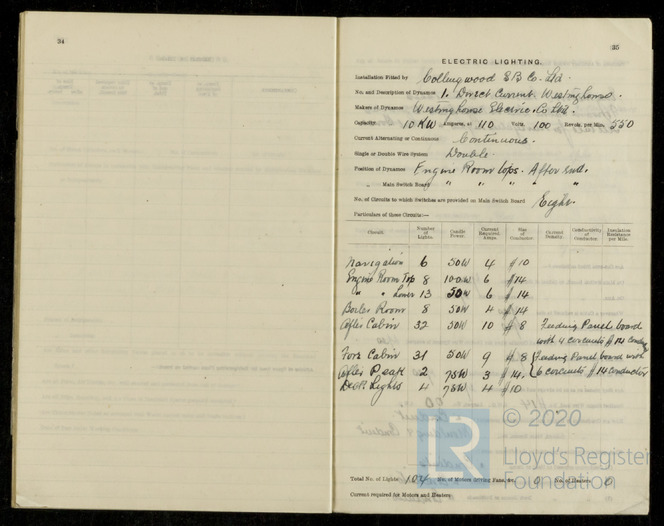 34
35
ELECTRIC LIGHTING.
Installation Fitted by Collingwood S B Co. Ltd.
No. and Description of Dynamos 1. Direct Current. Westinghouse.
Makers of Dynamos Westinghouse Electric Co Ltd.
Capacity 10 KW Amperes, at 110 Volts, 100 Revols. per Min. 550
Current Alternating or Continuous Continuous.
Single or Double Wire System Double.
Position of Dynamos Engine Room tops. After end.
„ Main Switch Board „ „ „ „ „
No. of Circuits to which Switches are provided on Main Switch Board Eight.
Particulars of these Circuits:—
Circuit. Number of Lights. Candle Power. Current Required Amps. Size of Conductor. Current Density. Conductivity of Conductor. Insulation Resistance per Mile.
Navigation 6 50W 4 # 10
Engine Room Top 8 100W 6 # 14
„ „ Lower 13 50W 6 # 14
Boiler Room 8 50W 4 # 14
After Cabin 32 50W 10 # 8 Feeding Panel board
with 4 circuits # 14 conductor
Fore Cabin 31 50W 9 # 8 Feeding Panel board with
After Peak 2 75W 3 # 14. 6 circuits # 14 conductor
Deck Lights 4 75W 4 # 10
© 2020
LR
Lloyd's Register
Foundation
Total No. of Lights 104 No. of Motors driving Fans, &c. 0 No. of Heaters 0
Current required for Motors and Heaters